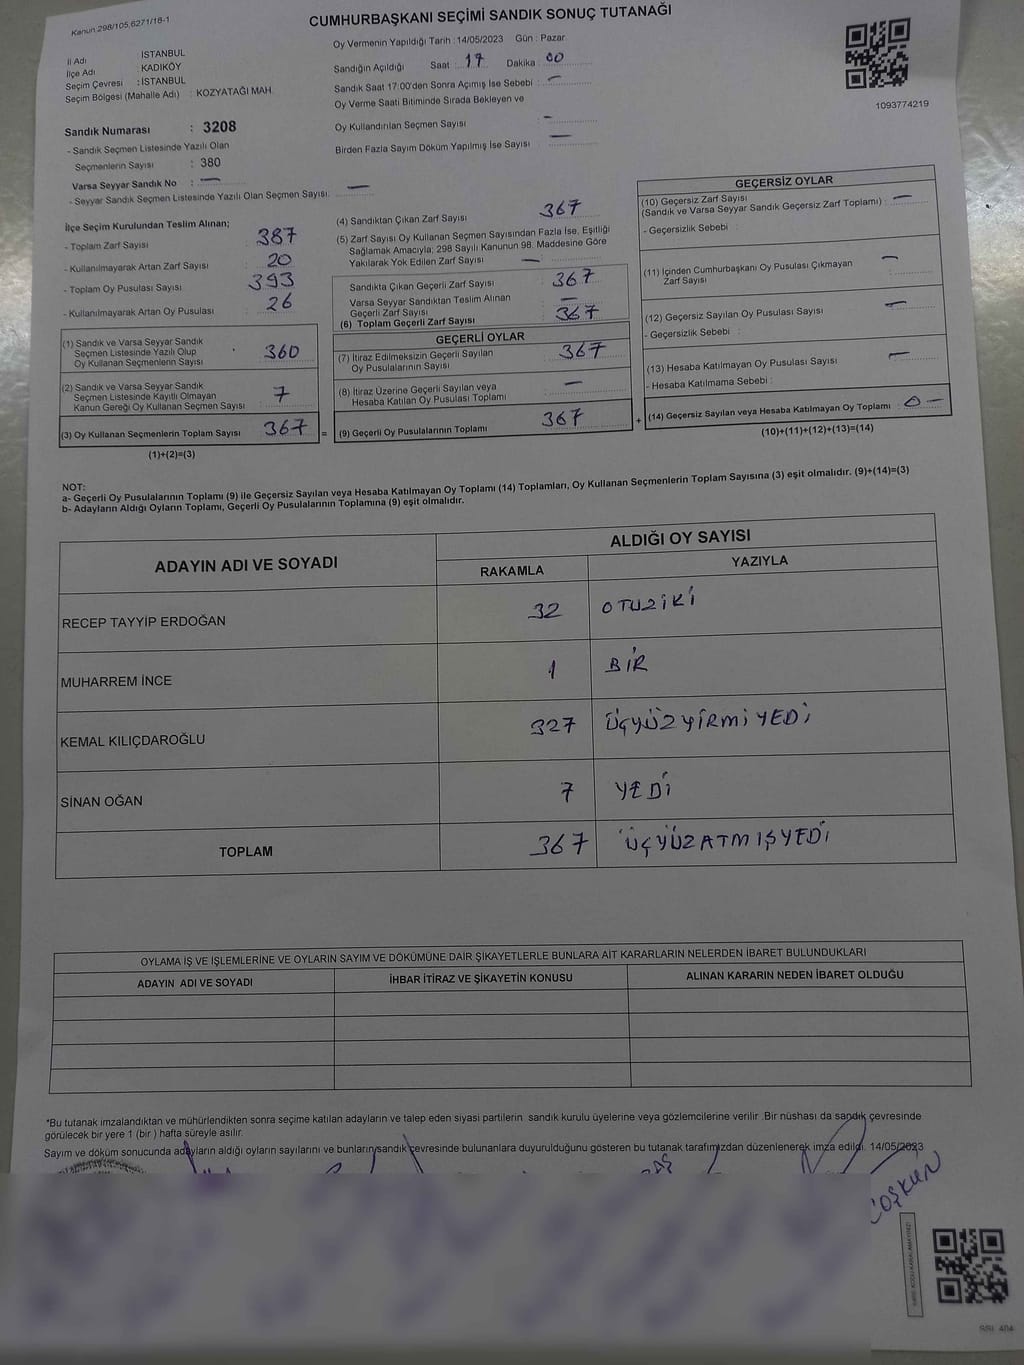 Kanun:298/105,6271/18-1
CUMHURBAŞKANI SEÇİMİ SANDIK SONUÇ TUTANAĞI
İl Adı İSTANBUL
İlçe Adı KADIKÖY
Seçim Çevresi : İSTANBUL
Seçim Bölgesi (Mahalle Adı) : KOZYATAĞI MAH.
Sandık Numarası : 3208
- Sandık Seçmen Listesinde Yazılı Olan
Seçmenlerin Sayısı : 380
Varsa Seyyar Sandık No : —
- Seyyar Sandık Seçmen Listesinde Yazılı Olan Seçmen Sayısı: —
Oy Vermenin Yapıldığı Tarih : 14/05/2023 Gün : Pazar
Sandığın Açıldığı Saat : 17 Dakika : 00
Sandık Saat 17:00'den Sonra Açımış İse Sebebi : —
Oy Verme Saati Bitiminde Sırada Bekleyen ve
Oy Kullandırılan Seçmen Sayısı : —
Birden Fazla Sayım Döküm Yapılmış İse Sayısı : —
1093774219
İlçe Seçim Kurulundan Teslim Alınan;
- Toplam Zarf Sayısı : 387
- Kullanılmayarak Artan Zarf Sayısı : 20
- Toplam Oy Pusulası Sayısı : 393
- Kullanılmayarak Artan Oy Pusulası : 26
(1) Sandık ve Varsa Seyyar Sandık
Seçmen Listesinde Yazılı Olup
Oy Kullanan Seçmenlerin Sayısı : 360
(2) Sandık ve Varsa Seyyar Sandık
Seçmen Listesinde Kayıtlı Olmayan
Kanun Gereği Oy Kullanan Seçmen Sayısı : 7
(3) Oy Kullanan Seçmenlerin Toplam Sayısı 367 =
(1)+(2)=(3)
(4) Sandıktan Çıkan Zarf Sayısı : 367
(5) Zarf Sayısı Oy Kullanan Seçmen Sayısından Fazla İse, Eşitliği
Sağlamak Amacıyla; 298 Sayılı Kanunun 98. Maddesine Göre
Yakılarak Yok Edilen Zarf Sayısı : —
Sandıkta Çıkan Geçerli Zarf Sayısı : 367
Varsa Seyyar Sandıktan Teslim Alınan
Geçerli Zarf Sayısı : —
(6) Toplam Geçerli Zarf Sayısı : 367
GEÇERLİ OYLAR
(7) İtiraz Edilmeksizin Geçerli Sayılan
Oy Pusulalarının Sayısı : 367
(8) İtiraz Üzerine Geçerli Sayılan veya
Hesaba Katılan Oy Pusulası Toplamı : —
(9) Geçerli Oy Pusulalarının Toplamı : 367 +
GEÇERSİZ OYLAR
(10) Geçersiz Zarf Sayısı
(Sandık ve Varsa Seyyar Sandık Geçersiz Zarf Toplamı) : —
- Geçersizlik Sebebi :
(11) İçinden Cumhurbaşkanı Oy Pusulası Çıkmayan
Zarf Sayısı : —
(12) Geçersiz Sayılan Oy Pusulası Sayısı : —
- Geçersizlik Sebebi :
(13) Hesaba Katılmayan Oy Pusulası Sayısı : —
- Hesaba Katılmama Sebebi :
(14) Geçersiz Sayılan veya Hesaba Katılmayan Oy Toplamı : 0 —
(10)+(11)+(12)+(13)=(14)
NOT:
a- Geçerli Oy Pusulalarının Toplamı (9) ile Geçersiz Sayılan veya Hesaba Katılmayan Oy Toplamı (14) Toplamları, Oy Kullanan Seçmenlerin Toplam Sayısına (3) eşit olmalıdır. (9)+(14)=(3)
b- Adayların Aldığı Oyların Toplamı, Geçerli Oy Pusulalarının Toplamına (9) eşit olmalıdır.
ADAYIN ADI VE SOYADI ALDIĞI OY SAYISI
RAKAMLA YAZIYLA
RECEP TAYYİP ERDOĞAN 32 OTUZİKİ
MUHARREM İNCE 1 BİR
KEMAL KILIÇDAROĞLU 327 ÜÇYÜZYİRMİYEDİ
SİNAN OĞAN 7 YEDİ
TOPLAM 367 ÜÇYÜZATMIŞYEDİ
OYLAMA İŞ VE İŞLEMLERİNE VE OYLARIN SAYIM VE DÖKÜMÜNE DAİR ŞİKAYETLERLE BUNLARA AİT KARARLARIN NELERDEN İBARET BULUNDUKLARI
ADAYIN ADI VE SOYADI İHBAR İTİRAZ VE ŞİKAYETİN KONUSU ALINAN KARARIN NEDEN İBARET OLDUĞU
*Bu tutanak imzalandıktan ve mühürlendikten sonra seçime katılan adayların ve talep eden siyasi partilerin sandık kurulu üyelerine veya gözlemcilerine verilir. Bir nüshası da sandık çevresinde
görülecek bir yere 1 (bir) hafta süreyle asılır.
Sayım ve döküm sonucunda adayların aldığı oyların sayılarını ve bunların sandık çevresinde bulunanlara duyurulduğunu gösteren bu tutanak tarafımızdan düzenlenerek imza edildi. 14/05/2023
COŞKUN